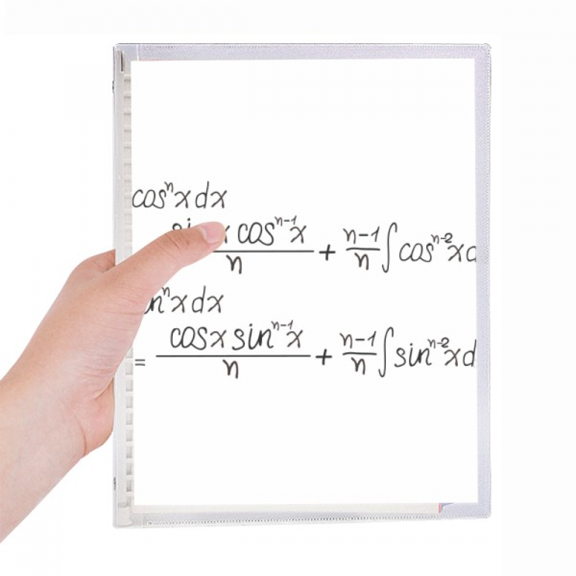 cosⁿx dx
x cosⁿ⁻¹x / n + n-1 / n ∫cosⁿ⁻²x
nⁿx dx
= cosx sinⁿ⁻¹x / n + n-1 / n ∫sinⁿ⁻²xd